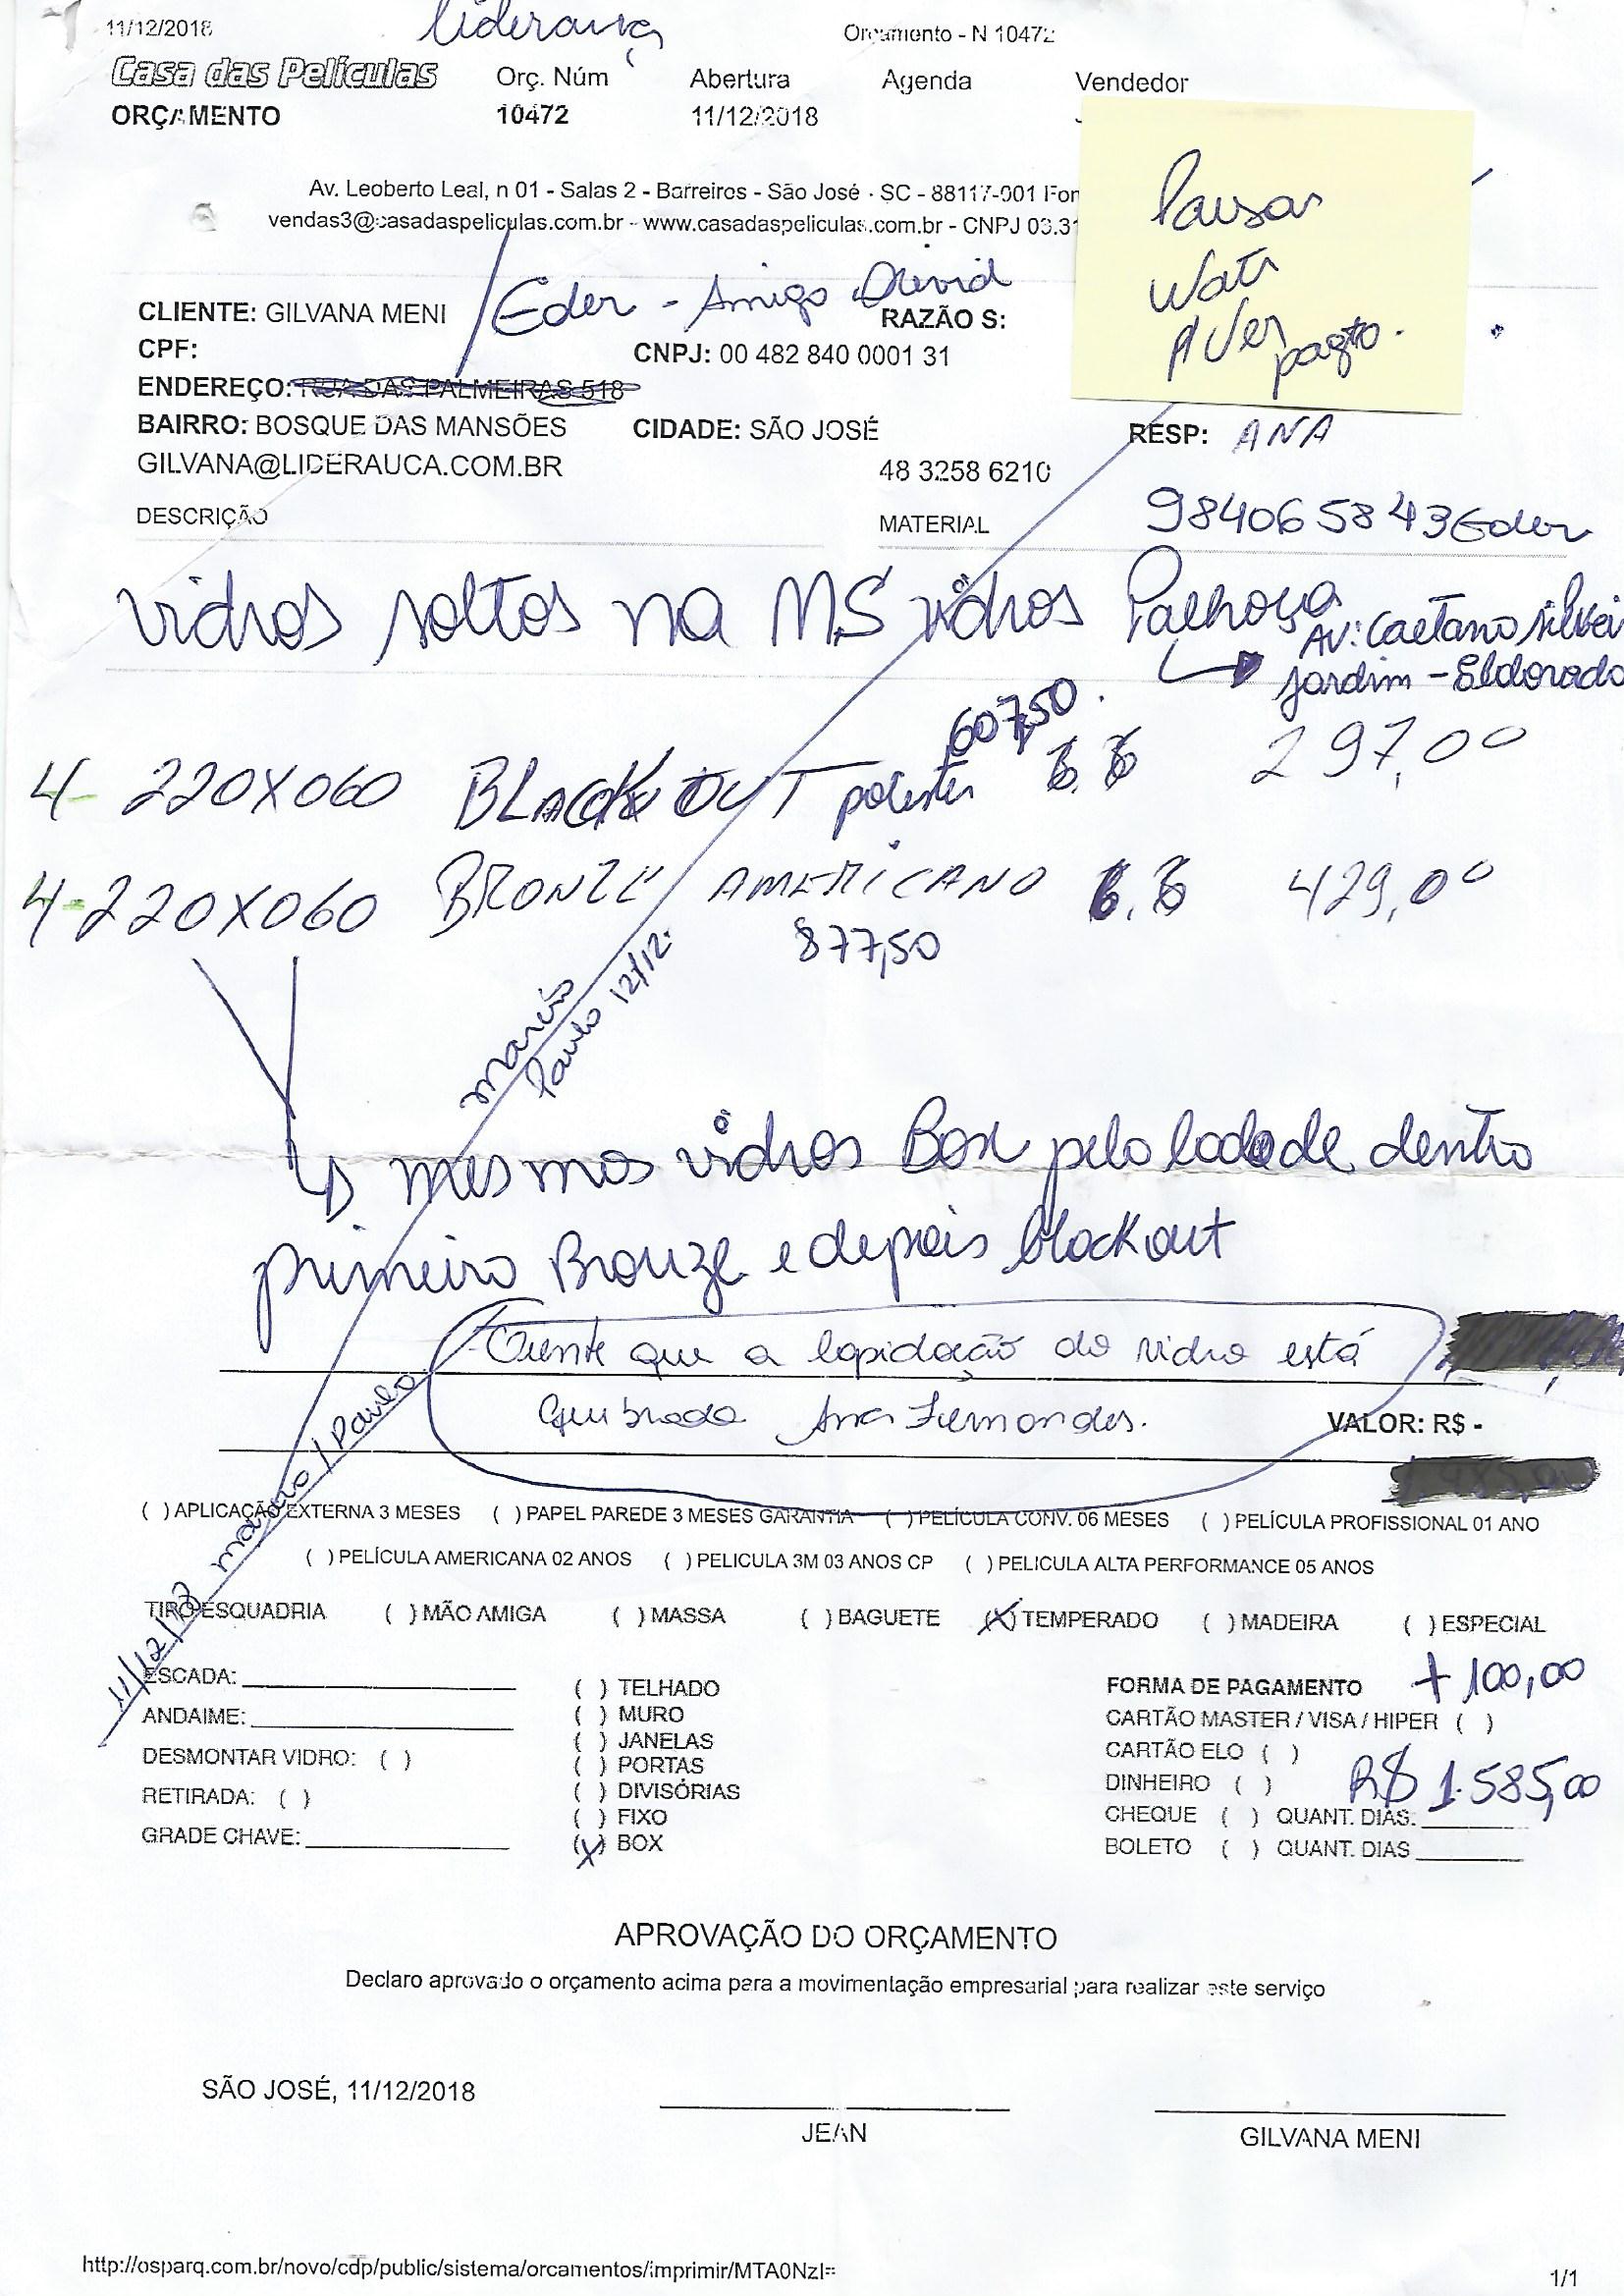 11/12/2018 Liderança Orçamento - N 10472
Casa das Películas Orç. Núm Abertura Agenda Vendedor
ORÇAMENTO 10472 11/12/2018
Av. Leoberto Leal, n 01 - Salas 2 - Barreiros - São José - SC - 88117-001 Fon
vendas3@casadaspeliculas.com.br - www.casadaspeliculas.com.br - CNPJ 03.31
Pausar
Wats
A Ver
pagto.
CLIENTE: GILVANA MENI / Eder - Amigo David RAZÃO S:
CPF: CNPJ: 00 482 840 0001 31
ENDEREÇO: RUA DAS PALMEIRAS 518
BAIRRO: BOSQUE DAS MANSÕES CIDADE: SÃO JOSÉ RESP: ANA
GILVANA@LIDERAUCA.COM.BR 48 3258 6210
DESCRIÇÃO MATERIAL 984065843 Eder
vidros soltos na MS vidros Palhoça
AV: Caetano Silvei
Jardim - Eldorado
607,50.
4- 220X060 BLACK OUT poliester 297,00
4-220X060 BRONZE AMERICANO 429,00
877,50
Marcio
Paulo 12/12.
mesmos vidros Box pelo lado de dentro
primeiro Bronze e depois blackout
Ciente que a lapidação do vidro está
Quebrada Ana Fernandes. VALOR: R$ -
11/12/ Marcio / Paulo
( ) APLICAÇÃO EXTERNA 3 MESES ( ) PAPEL PAREDE 3 MESES GARANTIA ( ) PELÍCULA CONV. 06 MESES ( ) PELÍCULA PROFISSIONAL 01 ANO
( ) PELÍCULA AMERICANA 02 ANOS ( ) PELICULA 3M 03 ANOS CP ( ) PELICULA ALTA PERFORMANCE 05 ANOS
TIRO ESQUADRIA ( ) MÃO AMIGA ( ) MASSA ( ) BAGUETE (X) TEMPERADO ( ) MADEIRA ( ) ESPECIAL
ESCADA: ( ) TELHADO FORMA DE PAGAMENTO + 100,00
ANDAIME: ( ) MURO CARTÃO MASTER / VISA / HIPER ( )
( ) JANELAS CARTÃO ELO ( )
DESMONTAR VIDRO: ( ) ( ) PORTAS DINHEIRO ( ) R$ 1.585,00
RETIRADA: ( ) ( ) DIVISÓRIAS CHEQUE ( ) QUANT. DIAS:
( ) FIXO
GRADE CHAVE: (X) BOX BOLETO ( ) QUANT. DIAS
APROVAÇÃO DO ORÇAMENTO
Declaro aprovado o orçamento acima para a movimentação empresarial para realizar este serviço
SÃO JOSÉ, 11/12/2018
JEAN GILVANA MENI
http://osparq.com.br/novo/cdp/public/sistema/orcamentos/imprimir/MTA0NzI= 1/1